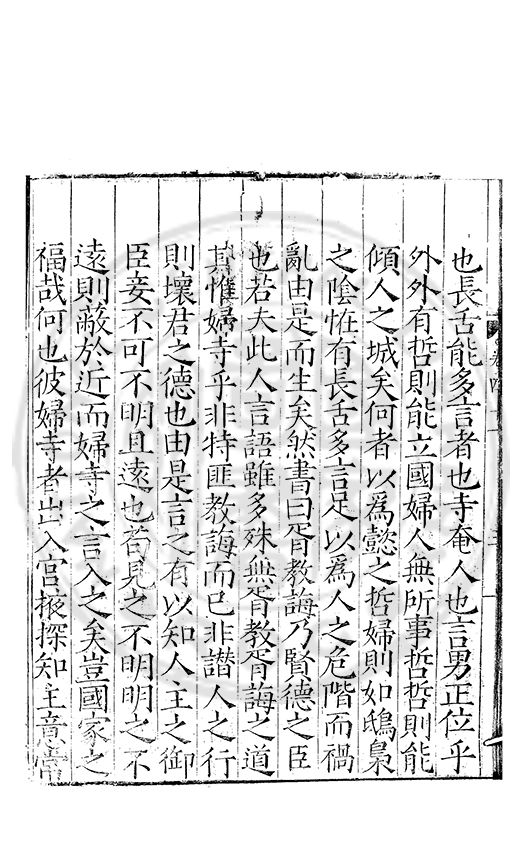 也長舌能多言者也寺奄人也言男正位乎
外外有哲則能立國婦人無所事哲哲則能
傾人之城矣何者以爲懿之哲婦則如鴟梟
之陰恠有長舌多言足以爲人之危階而禍
亂由是而生矣然書曰胥教誨乃賢德之臣
也若夫此人言語雖多殊無胥教胥誨之道
其惟婦寺乎非特匪教誨而已非譖人之行
則壞君之德也由是言之有以知人主之御
臣妾不可不明且遠也苟見之不明明之不
遠則蔽於近而婦寺之言入之矣豈國家之
福哉何也彼婦寺者出入宮掖探知主意常